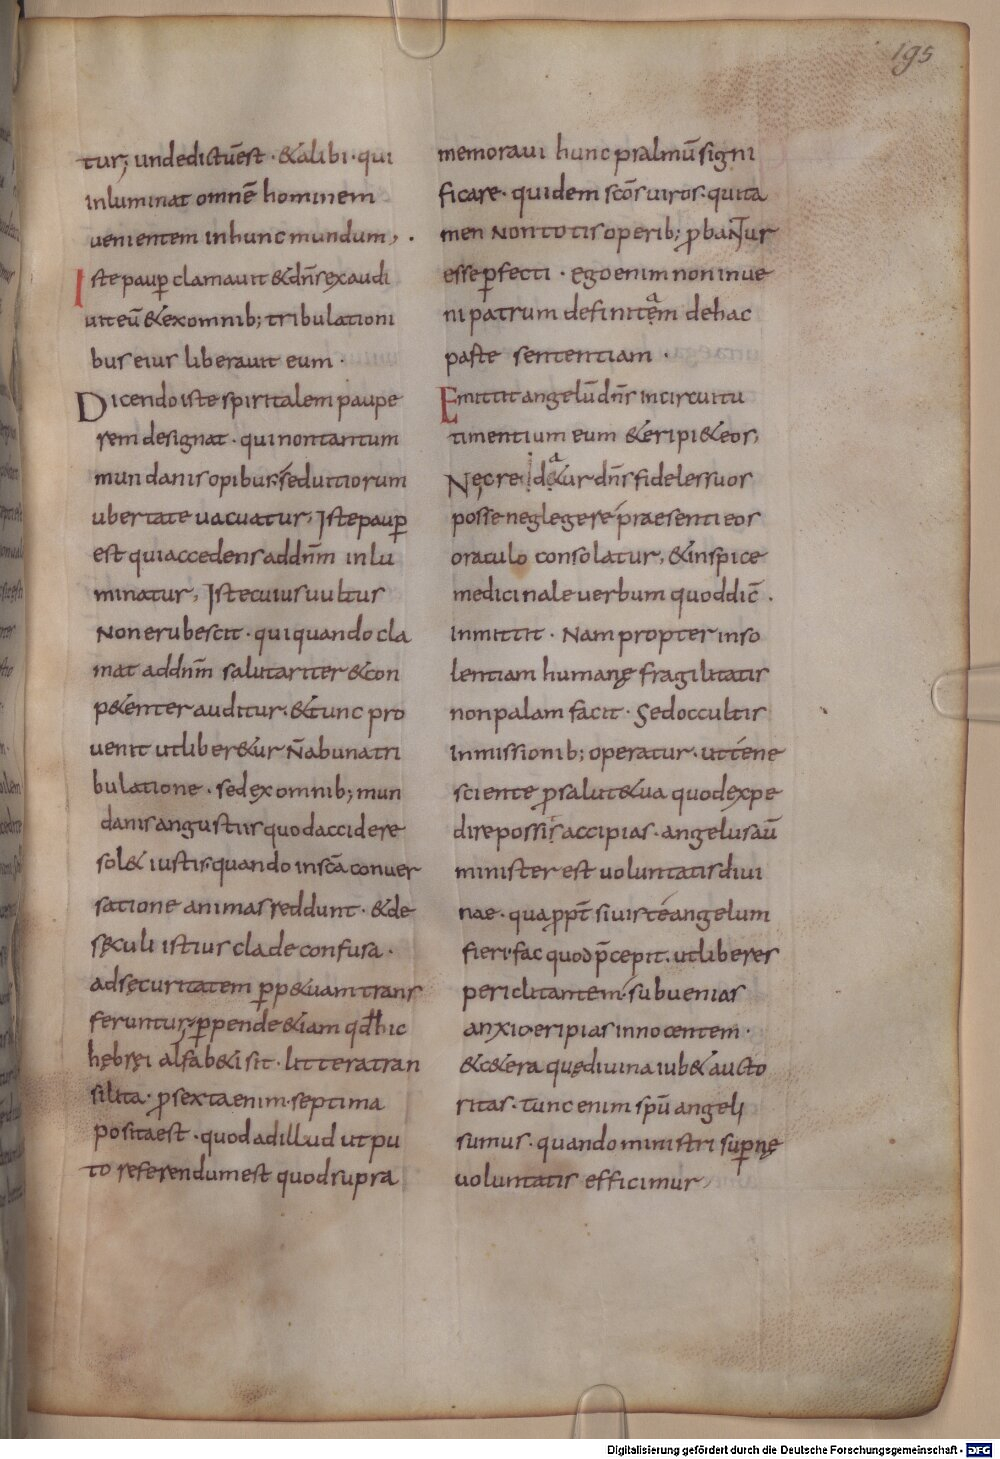 195
tur; unde dictū est · & alibi · qui
inluminat omnē hominem
uenientem in hunc mundum, ·
Iste paup clamauit & dn̄s exaudi
uit eū & ex omnib; tribulationi
bus eius liberauit eum ·
Dicendo iste spiritalem paupe
rem designat · qui non tantum
mundanis opibus, sed uitiorum
ubertate uacuatur, Iste paup
est qui accedens ad dn̄m inlu
minatur, Iste cuius uultus
Non erubescit · qui quando cla
mat ad dn̄m salutariter & con
p&enter auditur · & tunc pro
uenit ut liber&ur N̄ ab una tri
bulatione · sed ęx omnib; mun
danis angustiis quod accidere
sol& iustis, quando in sc̄a conuer
satione animas reddunt · & de
sęculi istius clade confusa ·
ad sęcuritatem pp&uam trans
feruntur, ppende &iam qđ hic
hębręi alfab&i sit · littera tran
silita · p sexta enim · septima
posita est · quod ad illud ut pu
to referendum est quod supra
memoraui hunc psalmū signi
ficare · quidem sc̄os uiros · qui ta
men Non totis operib; pbaNTur
esse pfecti · ego enim non inue
ni patrum definitam de hac
parte sententiam ·
Emittit angelū dn̄s in circuitu
timentium eum & eripi& eos,
Nę cred&ur dn̄s fideles suos
posse neglegere praesenti eos
oraculo consolatur, & inspice
medicinale uerbum quod dic̄ ·
inmittit · Nam propter inso
lentiam humanę fragilitatis
non palam facit · Sed occultis
inmissionib; operatur · ut te ne
sciente p salut& ua quod ęxpe
dire possis accipias · angelus aū
minister est uoluntatis diui
nae · qua ppt̄ si uis te angelum
fieri · fac quod p̄cepit · ut liberes
periclitantem · subuenias
anxio eripias innocentem ·
&c&era quę diuina iub& aucto
ritas · tunc enim spū angeli
sumus · quando ministri supnę
uoluntatis efficimur,
Digitalisierung gefördert durch die Deutsche Forschungsgemeinschaft - DFG